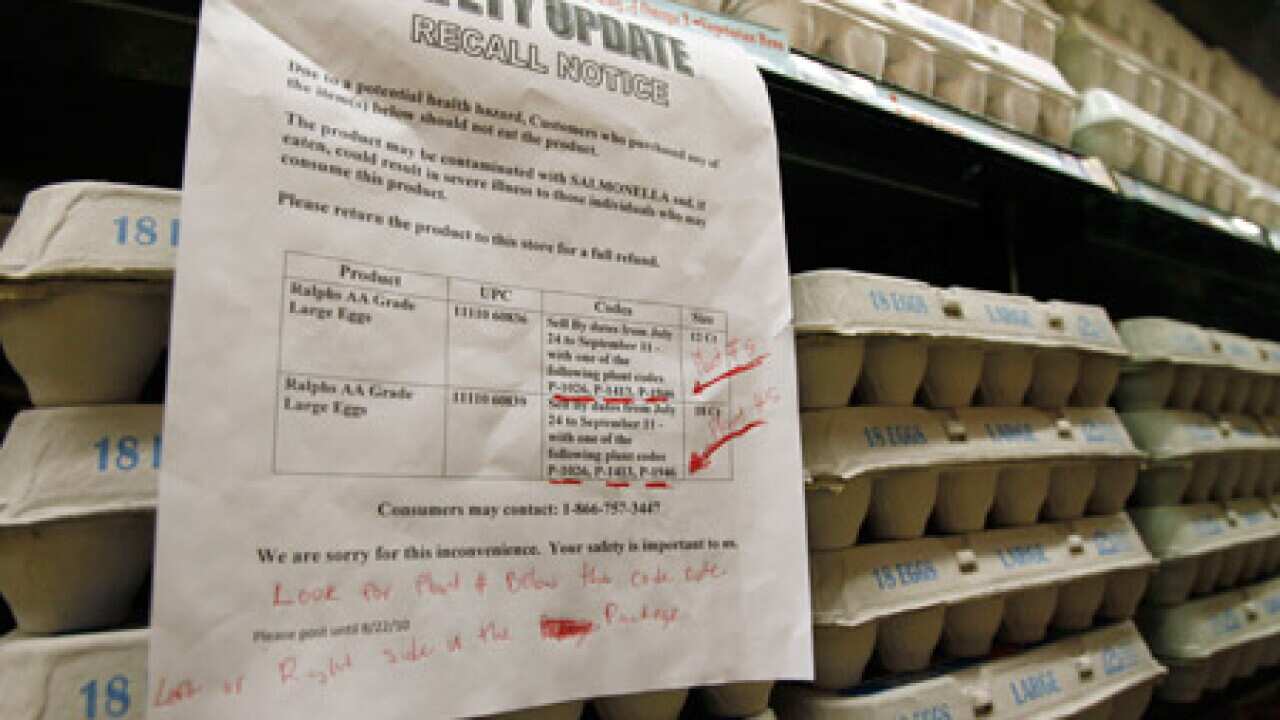 SAFETY UPDATE
RECALL NOTICE
Due to a potential health hazard, Customers who purchased any of
the item(s) below should not eat the product.
The product may be contaminated with SALMONELLA and, if
eaten, could result in severe illness to those individuals who may
consume this product.
Please return the product to this store for a full refund.
Product UPC Codes Size
Ralphs AA Grade
Large Eggs
11110 60836
Sell By dates from July
24 to September 11 -
with one of the
following plant codes
P-1026, P-1413, P-1946
12 Ct
Plant #'s
Ralphs AA Grade
Large Eggs
11110 60839
Sell By dates from July
24 to September 11 -
with one of the
following plant codes
P-1026, P-1413, P-1946
18 Ct
Plant #'s
Consumers may contact: 1-866-757-3447
We are sorry for this inconvenience. Your safety is important to us.
Look for Plant # Below the code date.
Please post until 8/22/10
Right side of the Package
18
18
18
18 EGGS LARGE
18 EGGS LARGE
18 EGGS LARGE
LARGE